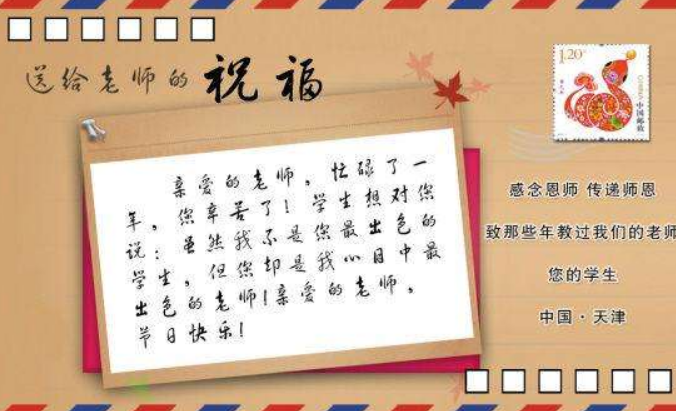 送给老师的祝福
1.20元
中国邮政
亲爱的老师，忙碌了一
年，您辛苦了！学生想对您
说：虽然我不是您最出色的
学生，但您却是我心目中最
出色的老师！亲爱的老师，
节日快乐！
感念恩师 传递师恩
致那些年教过我们的老师
您的学生
中国·天津